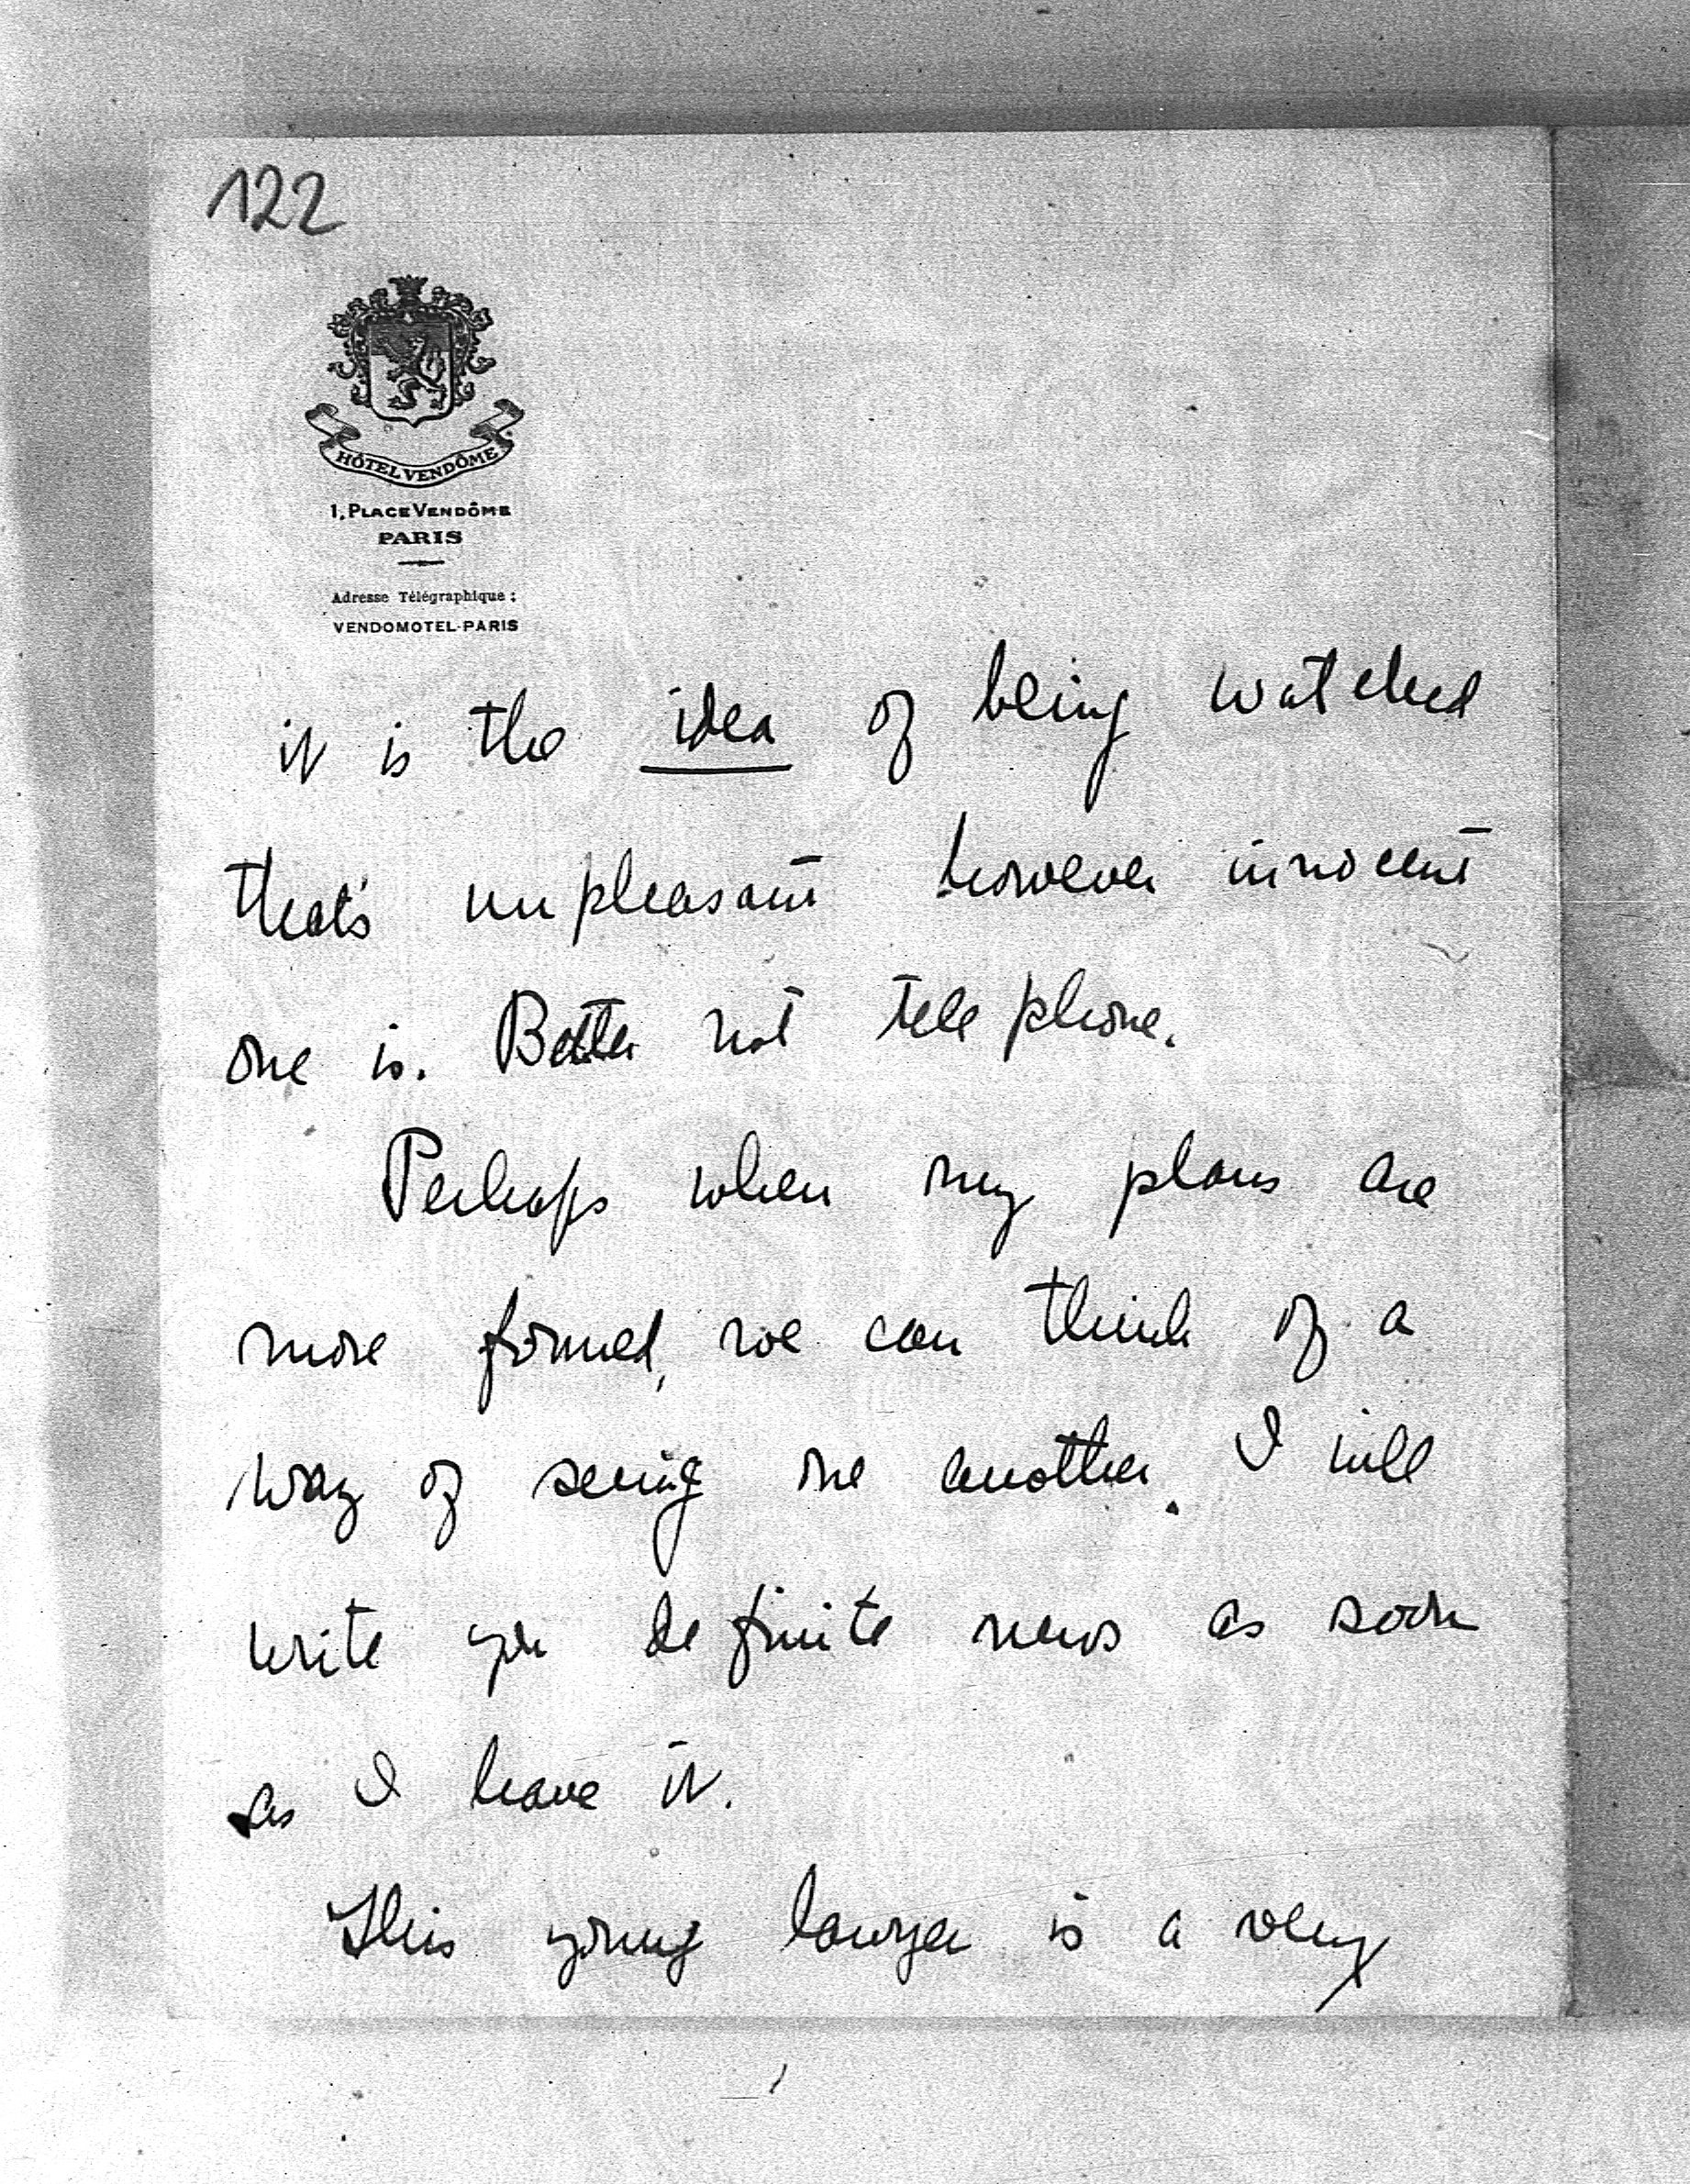 122
HÔTEL VENDÔME
1, PLACE VENDÔME
PARIS
Adresse Télégraphique :
VENDOMOTEL-PARIS
it is the idea of being watched
that's unpleasant however innocent
one is. Better not telephone.
Perhaps when my plans are
more formed, we can think of a
way of seeing one another. I will
write you definite news as soon
as I have it.
This young lawyer is a very